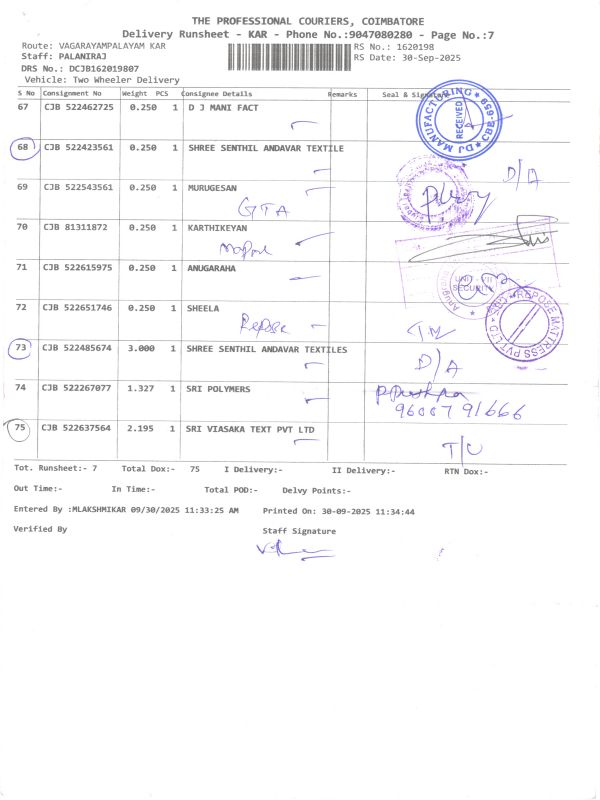 THE PROFESSIONAL COURIERS, COIMBATORE
Delivery Runsheet - KAR - Phone No.:9047080280 - Page No.:7
Route: VAGARAYAMPALAYAM KAR RS No.: 1620198
Staff: PALANIRAJ RS Date: 30-Sep-2025
DRS No.: DCJB162019807
Vehicle: Two Wheeler Delivery
S No Consignment No Weight PCS Consignee Details Remarks Seal & Signature
67 CJB 522462725 0.250 1 D J MANI FACT
DJ MANUFACTURING CBE-659 RECEIVED
68 CJB 522423561 0.250 1 SHREE SENTHIL ANDAVAR TEXTILE
D/A
69 CJB 522543561 0.250 1 MURUGESAN
GTA
70 CJB 81311872 0.250 1 KARTHIKEYAN
71 CJB 522615975 0.250 1 ANUGARAHA
UNIT - VII
SECURITY
72 CJB 522651746 0.250 1 SHEELA
Repose
REPOSE MATTRESS PVT LTD
73 CJB 522485674 3.000 1 SHREE SENTHIL ANDAVAR TEXTILES
D/A
74 CJB 522267077 1.327 1 SRI POLYMERS
9600791666
75 CJB 522637564 2.195 1 SRI VIASAKA TEXT PVT LTD
Tot. Runsheet:- 7 Total Dox:- 75 I Delivery:- II Delivery:- RTN Dox:-
Out Time:- In Time:- Total POD:- Delvy Points:-
Entered By :MLAKSHMIKAR 09/30/2025 11:33:25 AM Printed On: 30-09-2025 11:34:44
Verified By Staff Signature